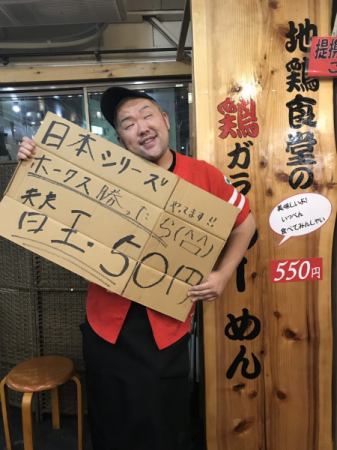 日本シリーズ やってます!!
ホークス勝ったら(^^)
替玉・50円
地鶏食堂の
鶏ガラ ーめん
美味しいよ!
いっぺん
食べてみんしゃい
550円
提携